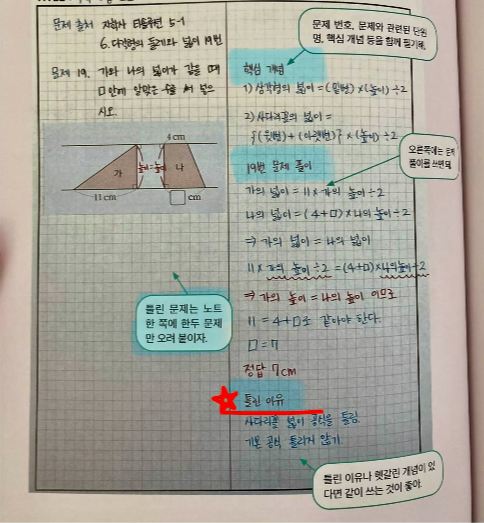 문제 출처 지학사 티솔루션 5-1
6. 다각형의 둘레와 넓이 19번
문제 19. 가와 나의 넓이가 같을 때
□안에 알맞은 수를 써 넣으
시오.
4 cm
가
높이=높이
나
11 cm
□ cm
틀린 문제는 노트
한 쪽에 한두 문제
만 오려 붙이자.
문제 번호, 문제와 관련된 단원
명, 핵심 개념 등을 함께 필기해.
핵심 개념
1) 삼각형의 넓이 = (밑변) × (높이) ÷ 2
2) 사다리꼴의 넓이 =
{(윗변) + (아랫변)} × (높이) ÷ 2
오른쪽에는 문제
풀이를 쓰면 돼.
19번 문제 풀이
가의 넓이 = 11 × 가의 높이 ÷ 2
나의 넓이 = (4+□) × 나의 높이 ÷ 2
⇒ 가의 넓이 = 나의 넓이
11 × 가의 높이 ÷ 2 = (4+□) × 나의 높이 ÷ 2
⇒ 가의 높이 = 나의 높이 이므로
11 = 4+□로 같아야 한다.
□ = 7
정답 7cm
틀린 이유
사다리꼴 넓이 공식을 틀림.
기본 공식 틀리지 않기
틀린 이유나 헷갈린 개념이 있
다면 같이 쓰는 것이 좋아.